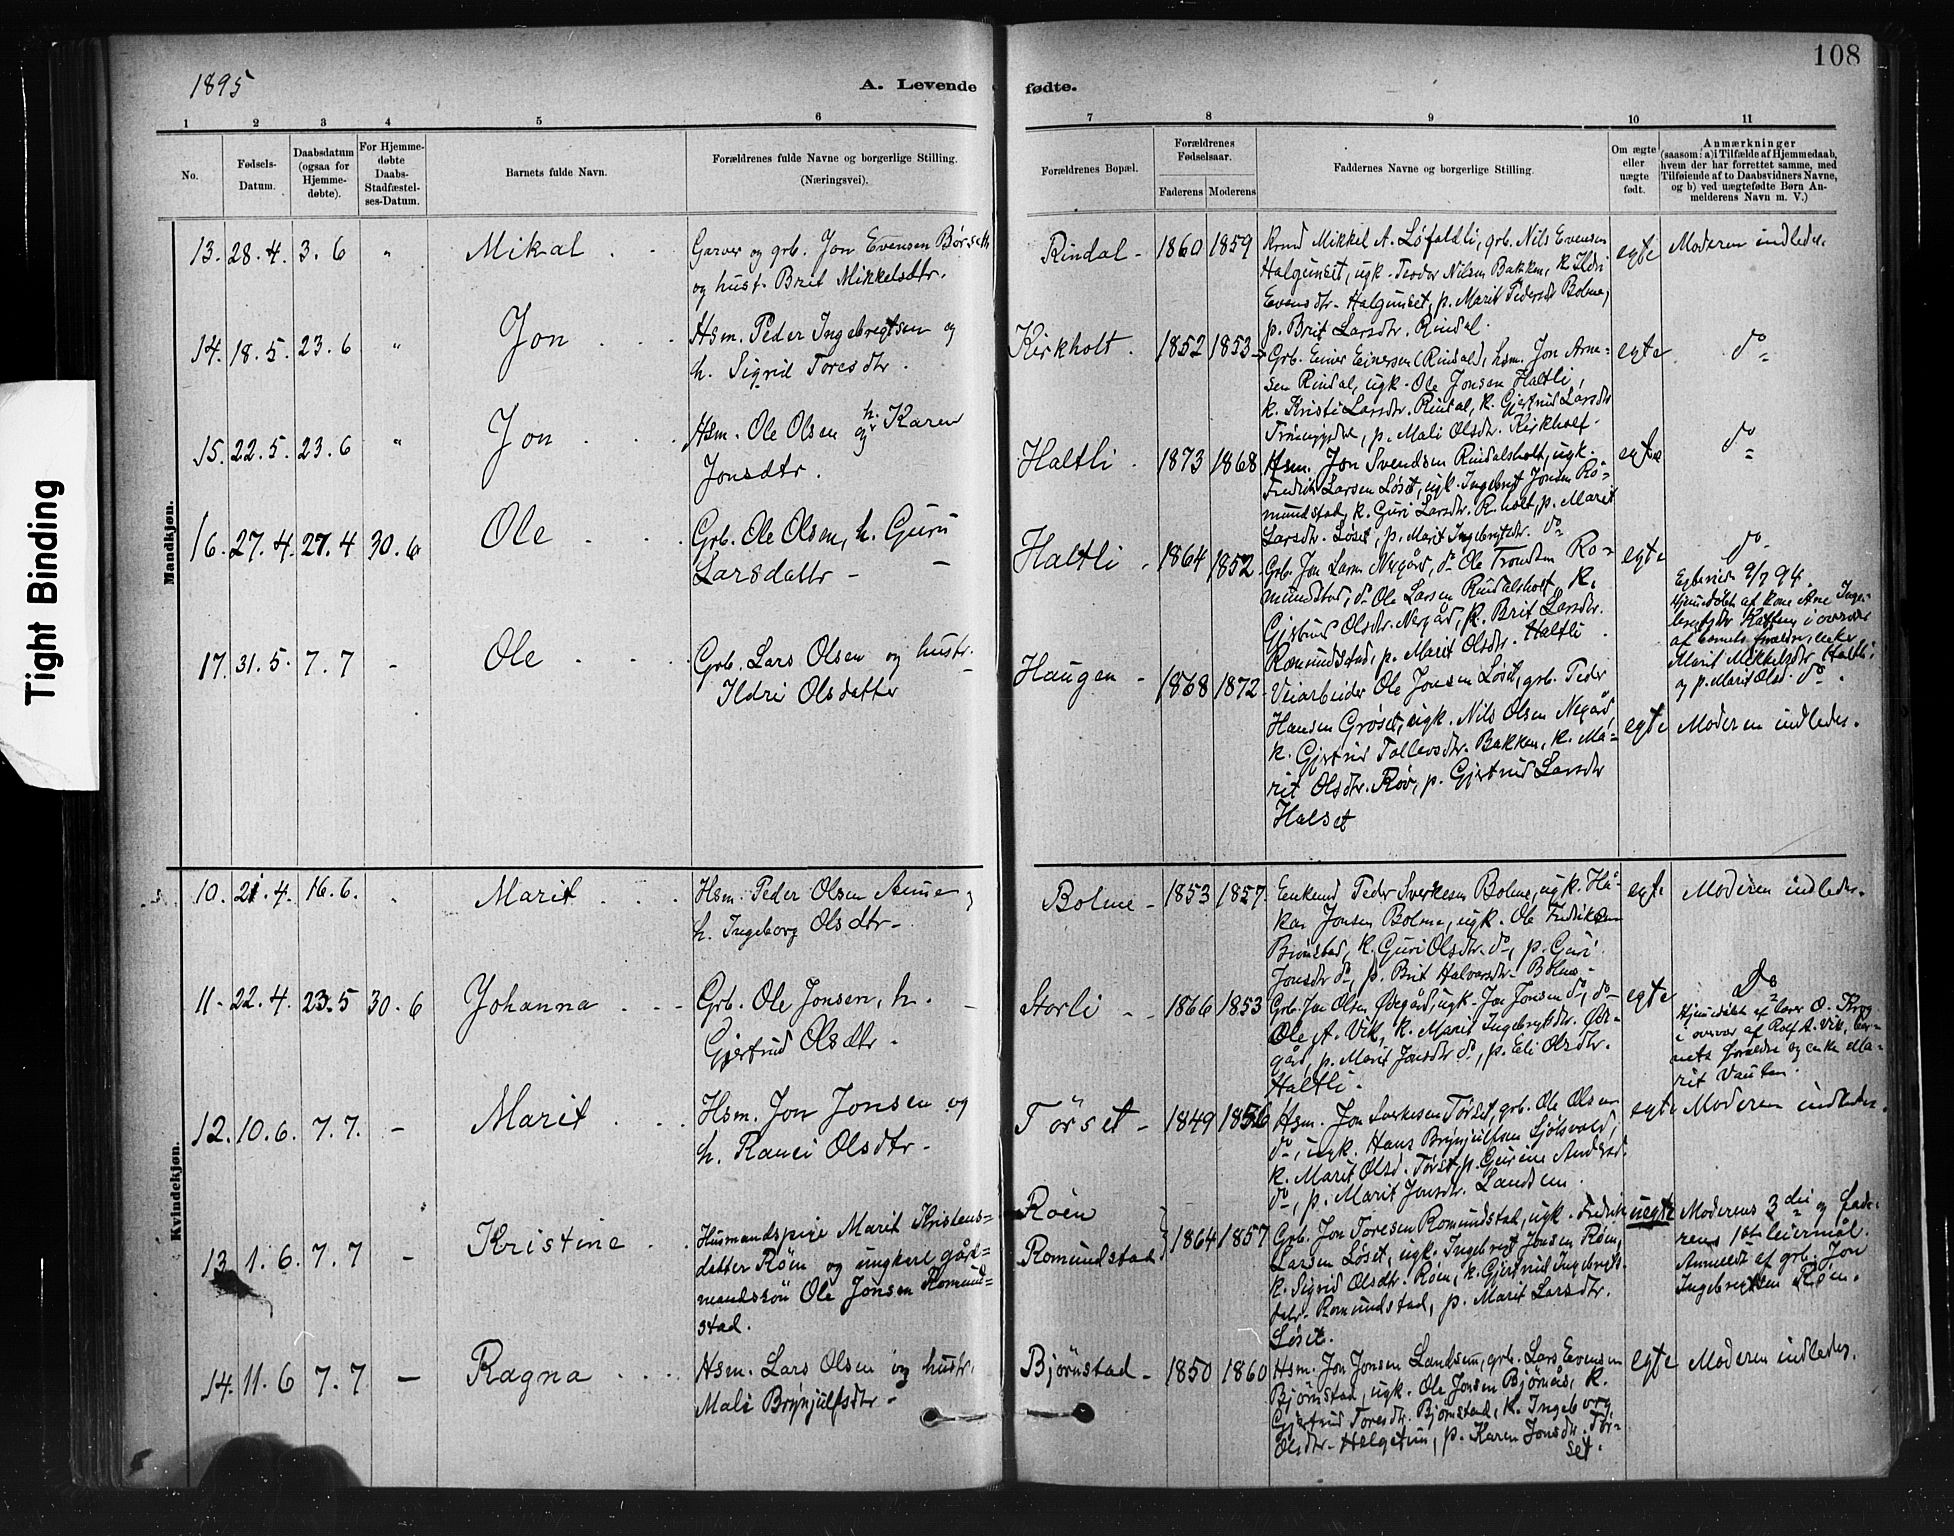 108
1895
A. Levende fødte.
1 2 3 4 5 6 7 8 9 10 11
No.
Fødsels-
Datum.
Daabsdatum
(ogsaa for
Hjemme-
døbte).
For Hjemme-
døbte
Daabs-
Stadfæstel-
ses-Datum.
Barnets fulde Navn.
Forældrenes fulde Navne og borgerlige Stilling.
(Næringsvei).
Forældrenes Bopæl.
Forældrenes
Fødselsaar.
Faderens Moderens
Faddernes Navne og borgerlige Stilling.
Om ægte
eller
uægte
født.
Anmærkninger
(saasom: a) i Tilfælde af Hjemmedaab,
hvem der har forrettet samme, med
Tilføiende af to Daabsvidners Navne,
og b) ved uægtefødte Børn An-
melderens Navn m. V.)
Tight Binding
Mandkjøn.
13. 28.4. 3.6 " Mikal
Garver og grb. Jon Evensen Børseth
og hust. Brit Mikkelsdtr.
Rindal - 1860 1859
Mikkel A. Løfaldli, grb. Nils Evensen
Halgunset, ugk. Teodor Nilsen Bakken, k. Ildri
Evensdtr. Halgunset, p. Marit Pedersdt Bolme,
p. Brit Larsdtr. Rindal.
egte Moderen indledes.
14. 18.5. 23.6 " Jon
Hsm. Peder Ingebrigtsen og
h. Sigrid Toresdtr.
Kirkholt. 1852 1853
Grb. Einer Einersen (Rindal), hsm. Jon Arne-
sen Rindal, ugk. Ole Jonsen Haltli,
k. Kristi Larsdtr. Rindal, k. Gjertrud Larsdtr
p. Mali Olsdtr. Kirkholt.
egte do
15. 22.5. 23.6 " Jon
Hsm. Ole Olsen og h. Karen
Jonsdtr.
Haltli. 1873 1868
Hsm. Jon Svendsen Rindalsholt, ugk.
Fredrik Larsen Løset, ugk. Ingebrit Jonsen Ro-
mundstad, k. Guri Larsdtr. R.holt, p. Marit
Larsdtr. Løset, p. Marit Ingebrigtsdtr. do
egte do
16. 27.4. 27.4 30.6 Ole
Grb. Ole Olsen, h. Guru
Larsdattr -
Haltli - 1864 1852.
Grb. Jon Larsen Nergård, do Ole Trondsen Ro-
mundstad, do Ole Larsen Rindalsholt, k.
Gjertrud Olsdtr. Nergård, k. Brit Larsdtr.
Romundstad, p. Marit Olsdtr. Haltli
egte do
Egteviede 9/7 94.
Hjemmedøbt af kone Ane Inge-
i overvær
af barnets forældre, enke
Marit Mikkelsdtr Haltli
og p. Marit Olsd. do.
17. 31.5. 7.7 - Ole
Grb. Lars Olsen og hustr.
Ildri Olsdatter
Haugen - 1868 1872
Veiarbeider Ole Jonsen Løset, grb. Peder
Hansen Grøset, ugk. Nils Olsen Negård,
k. Gjertrud Tollevsdtr. Bakken, k. Ma-
rit Olsdtr. Røv, p. Gjertrud Larsdtr
Halset
egte Moderen indledes.
Kvindekjøn.
10. 21.4. 16.6. Marit
Hsm. Peder Olsen Aune og
h. Ingeborg Olsdtr -
Bolme - 1853 1857.
Enkemd Peder Sverkesen Bolme, ugk. Hå-
kon Jonsen Bolme, ugk. Ole Fredriksen
Bjørnstad, k. Guri Olsdtr. do, p. Guri
Jonsdtr do, p. Brit Halvorsdtr. Bolme -
egte Moderen indledes.
11 - 22.4. 23.5 30.6 Johanna
Grb. Ole Jonsen, h.
Gjertrud Olsdtr.
Storli - 1866 1853
Grb. Jon Olsen Øvegård, ugk. Jon Jonsen do, do
Ole A. Vik, k. Marit Ingebrigtsdtr. Øve-
gård, p. Marit Jonsdtr do, p. Eli Olsdtr.
Haltli.
egte Do
Hjemmedøbt af lærer O. Krog
i overvær af Rolf A. Vik, bar-
nets forældre og enke Ma-
rit
12. 10.6. 7.7. - Marit
Hsm. Jon Jonsen og
h. Ranei Olsdtr -
Tørset - 1849 1856
Hsm. Jon Sverkesen Tørset, grb. Ole Olsen
do, ugk. Hans Brynjulfsen Sjølsvold,
k. Marit Olsd. Tørset, p. Gurine Andersd.
do, p. Marit Jonsdtr. Landsem.
egte Moderen indledes.
13. 1.6. 7.7 - Kristine
Husmandspige Marit Kristens-
datter Røen og ungkarl gård-
mandssøn Ole Jonsen Romund-
stad.
Røen
Romundstad } 1864 1857
Grb. Jon Toresen Romundstad, ugk. Fredrik
Larsen Løset, ugk. Ingebrigt Jonsen Røen,
k. Sigrid Olsdtr. Røen, k. Gjertrud Ingebrigts-
datr. Romundstad, p. Marit Larsdtr.
Løset.
uegte Moderens 3die og fade-
rens 1ste leiermål.
Anmeldt af grb. Jon
Ingebrigtsen Røen.
14. 11.6 7.7 - Ragna
Hsm. Lars Olsen og hustr.
Mali Brynjulfsdtr -
Bjørnstad - 1850 1860
Hsm. Jon Jonsen Landsem, grb. Lars Evensen
Bjørnstad, ugk. Ole Jonsen Bjørnås, k.
Gjertrud Toresdtr. Bjørnstad, k. Ingeborg
Olsdtr. Helgetun, p. Karen Jonsdtr. Tør-
set.
egte Moderen indledes.